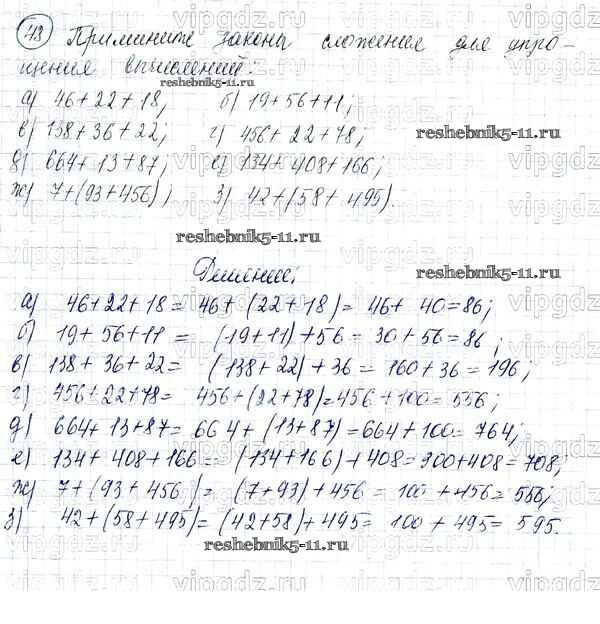 43 Примините законы сложения для упро-
щения вычислений:
а) 46+22+18; б) 19+56+11;
в) 138+36+22; г) 456+22+78;
д) 664+13+87; е) 134+408+166;
ж) 7+(93+456); з) 42+(58+495).
reshebnik5-11.ru
reshebnik5-11.ru
Решение:
а) 46+22+18=46+(22+18)=46+40=86;
б) 19+56+11=(19+11)+56=30+56=86;
в) 138+36+22=(138+22)+36=160+36=196;
г) 456+22+78=456+(22+78)=456+100=556;
д) 664+13+87=664+(13+87)=664+100=764;
е) 134+408+166=(134+166)+408=300+408=708;
ж) 7+(93+456)=(7+93)+456=100+456=556;
з) 42+(58+495)=(42+58)+495=100+495=595.
reshebnik5-11.ru
vipgdz.ru